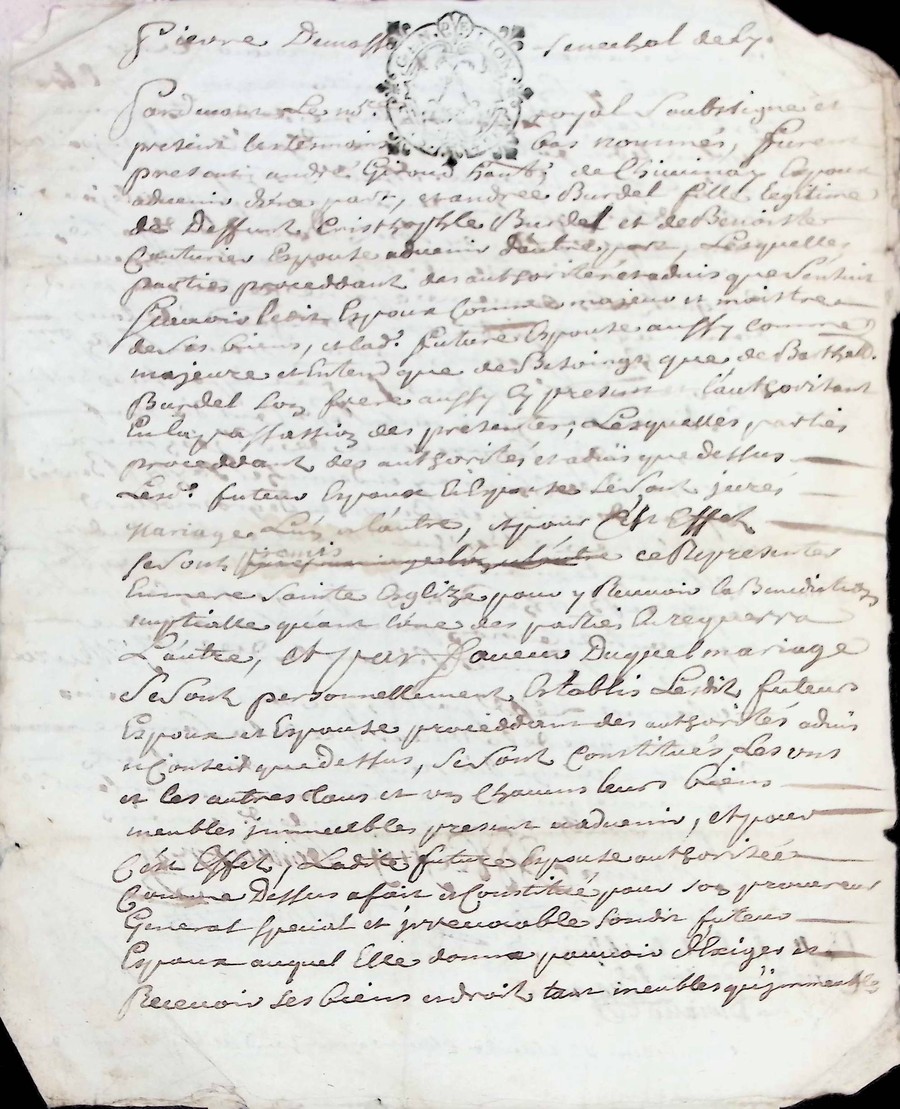 Pierre Dumass senechal de Ly.
GEN DE LION
Pardevant Le no.re royal Soubsigné et
present les tesmoins bas nommés, furent
present andré Giroud habt. de Espoux
advenir d'une part, et andrée Burdel fille legitime
de Deffunt Cristhophle Burdel et de Benoiste
Couturier Espouse advenir d'autre part, Lesquelles
parties proceddant des authorités et aduis que s'ensuit
Scavoir ledit Espoux Comme majeur et maistre
de ses biens, et lad.e future Espouse aussy comme
majeure et Entend que de Besoingt que de Barthel.
Burdel son frere aussy Cy present L'authorisant
En la passassion des presentes, Lesquelles parties
proceddant des authorités et aduis que dessus
Lesd.s futeur Espoux et Espouse se sont jurés
Mariage L'un a l'autre, et pour C'est Effet
se sont promis ce Representer
En mere Sainte Esglize pour y Recevoir la Benediction
nuptialle quant L'une des parties En requerra
L'autre, et par faveur Duquel mariage
Se Sont personnellement Establis Lesdit futeurs
Espoux et Espouse proceddant des authorités aduis
et Conseil que dessus, se sont Constitués Les uns
et les autres tous et un Chacuns leurs biens
meubles immeubles present et advenir, et pour
C'est Effet, Ladite future Espouse authorisée
Comme Dessus a fait et Constitué pour son procureur
General special et irrevocable sondit futeur
Espoux auquel Elle donne pouvoir d'Exiger et
Recevoir ses biens et droit tant meubles qu'immeubles